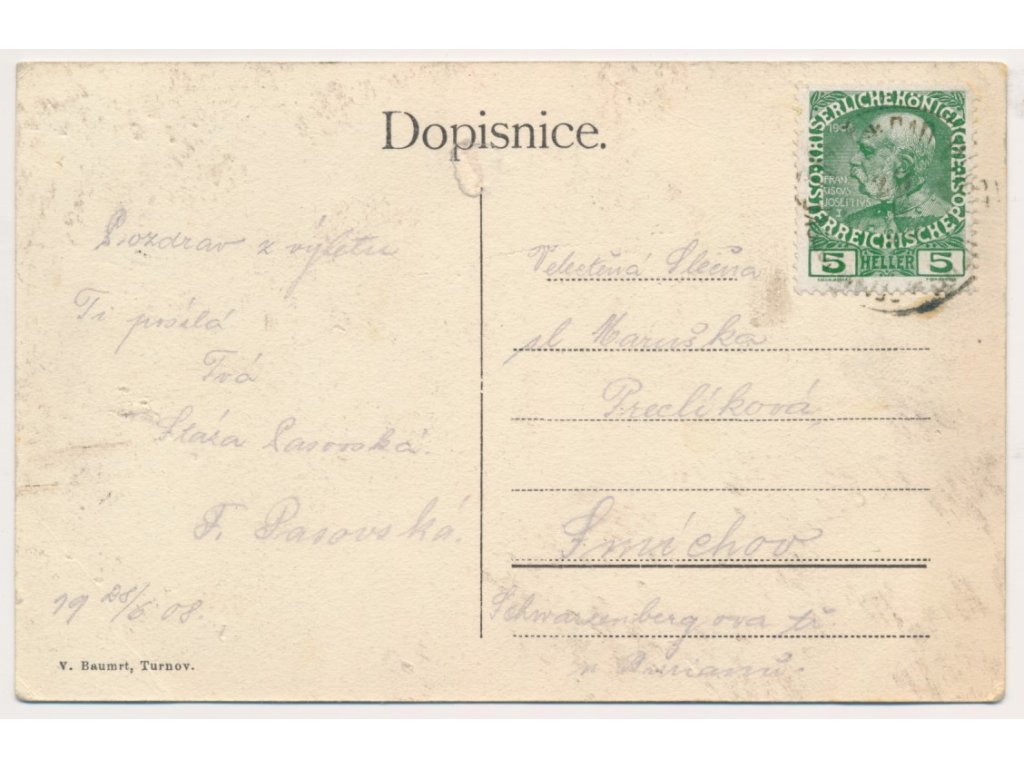 Dopisnice.
Pozdrav z výletu
Ti posílá
Tvá
Stáza Pasovská.
F. Pasovská.
19 28/6 08.
V. Baumrt, Turnov.
KAISERLICHE KÖNIGLICHE ÖSTERREICHISCHE POST
1908
FRAN
CISCVS
JOSEPHVS
I
5 HELLER 5
Velectěná Slečna
sl Maruška
Preclíková
Smíchov
Schwarzenbergova tř
u Burianů.